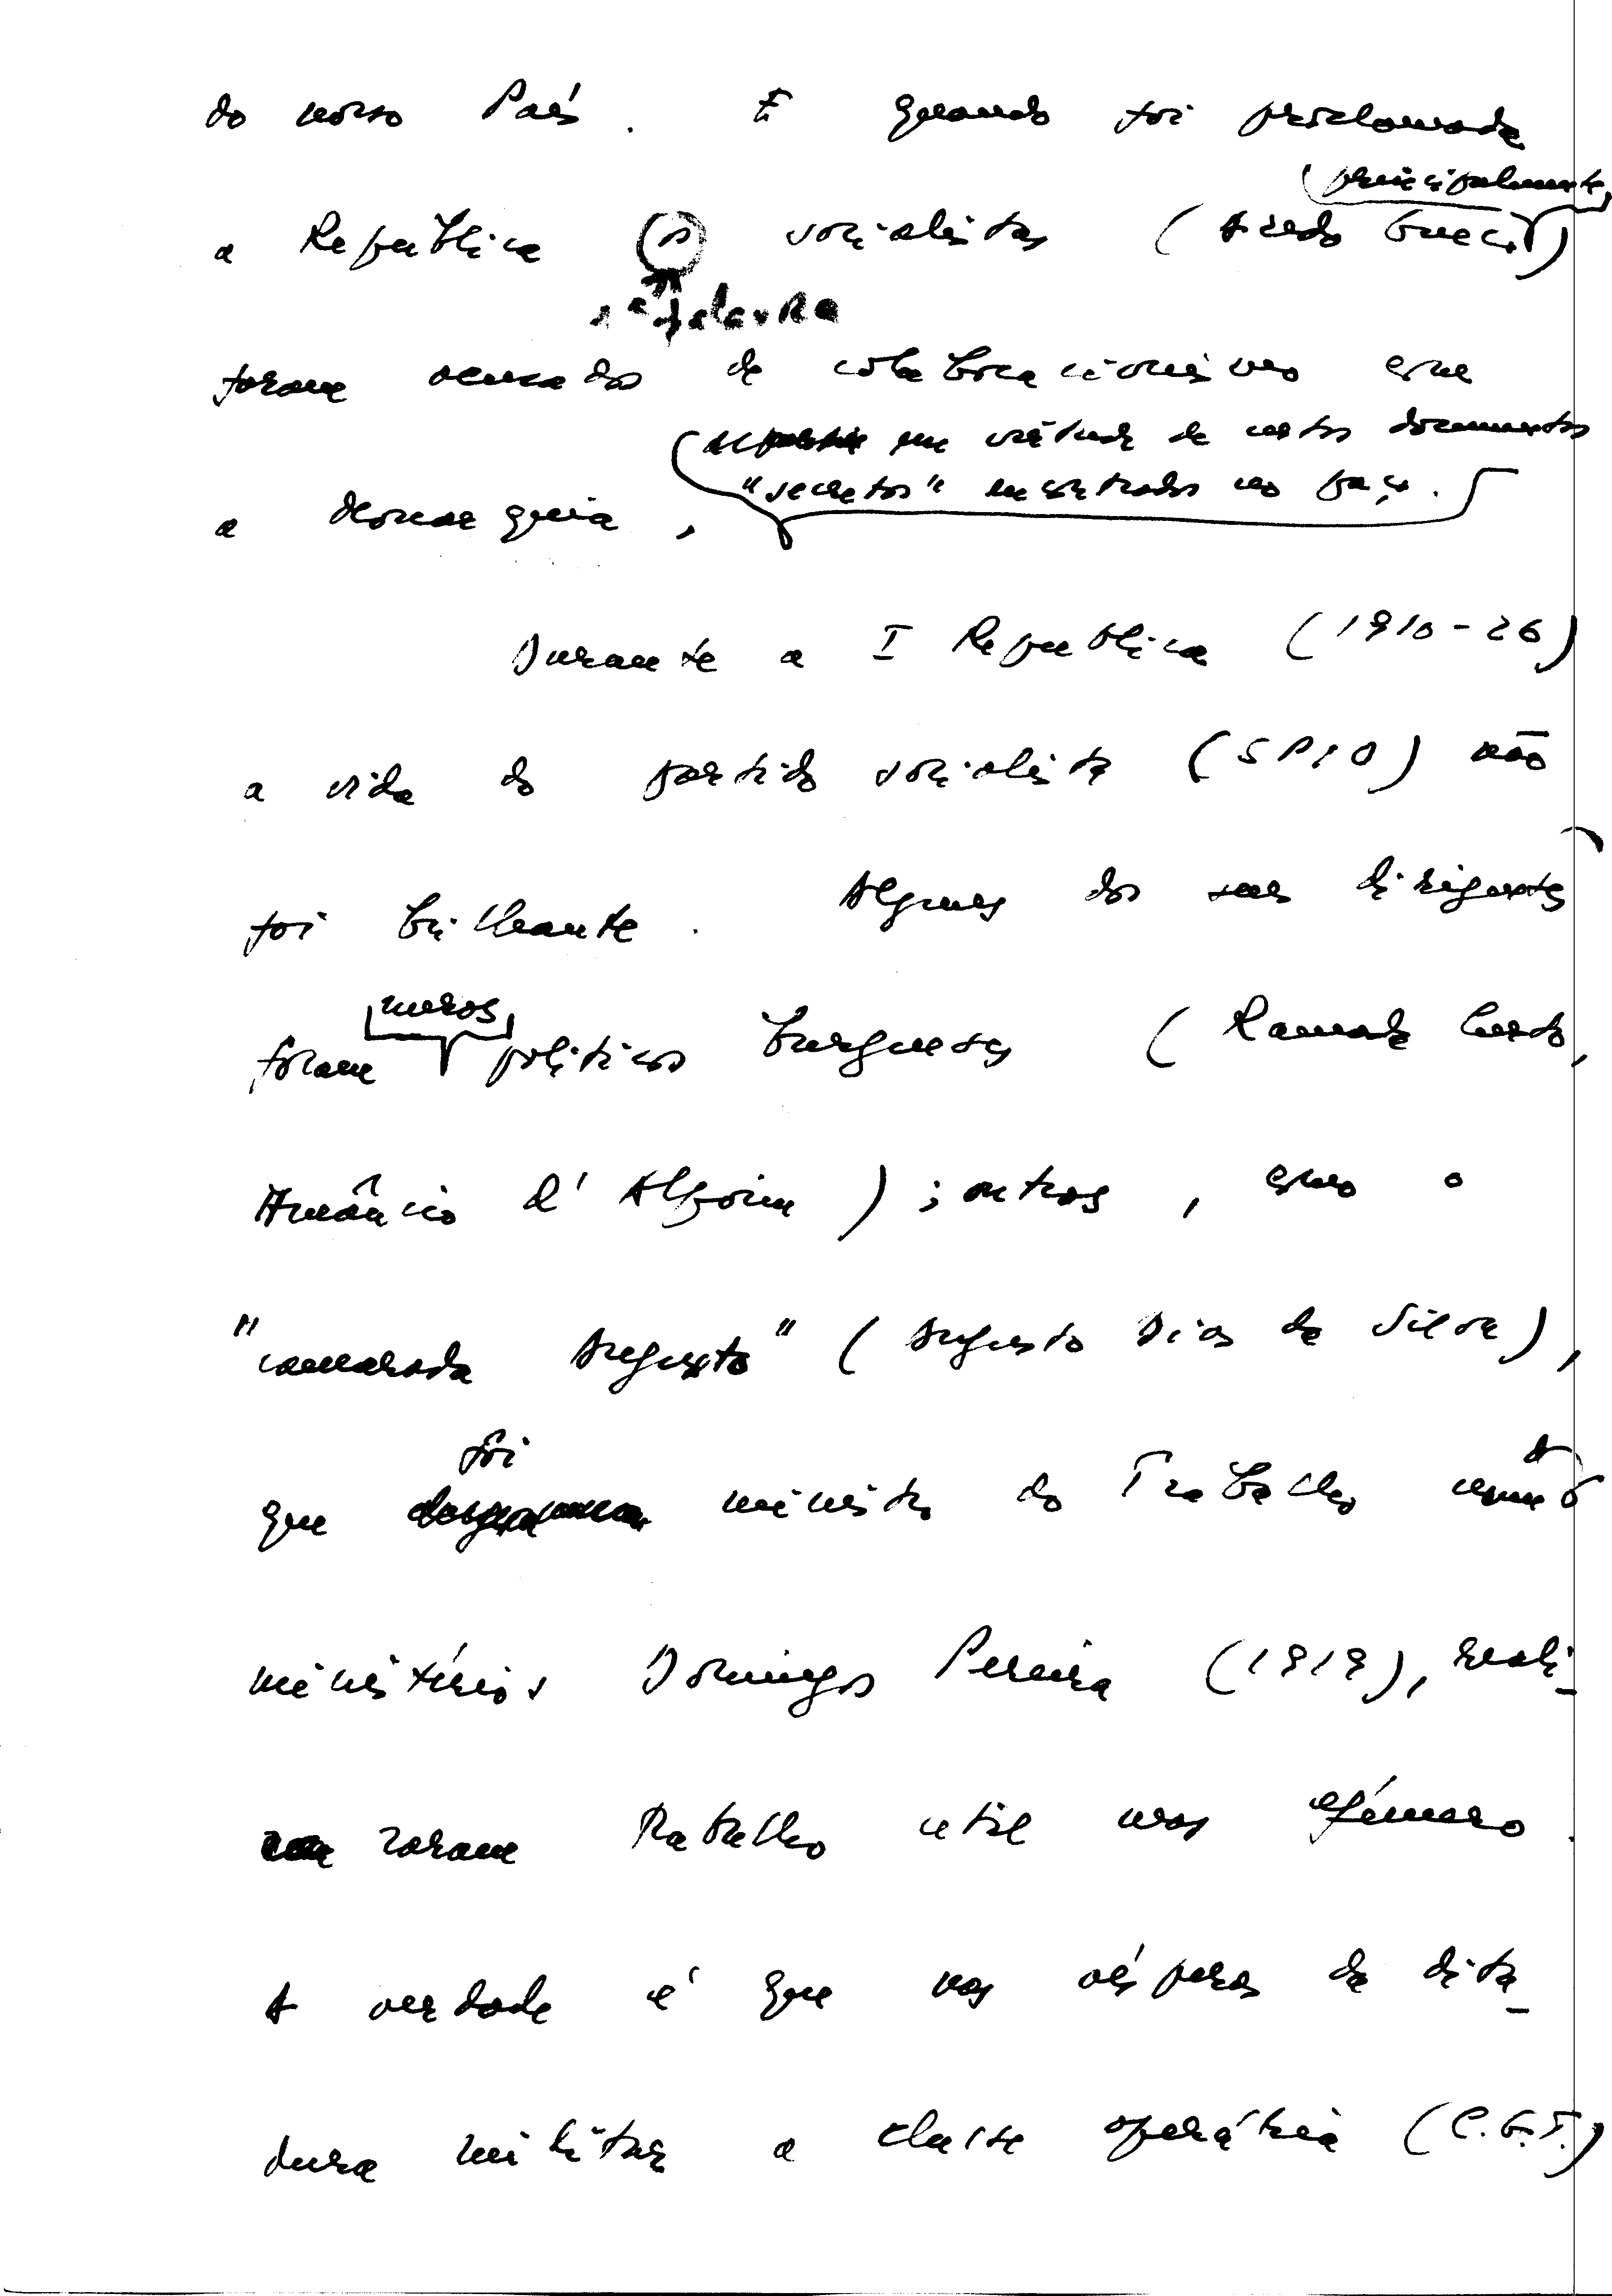 do nosso País. E quando foi proclamada
(principalmente
a República os socialistas (Azedo Gneco)
1ª palavra
foram acusados de colaboracionismo com
em virtude de certos documentos
"secretos" encontrados no paço.
a Monarquia,
Durante a I República (1910-26)
a vida do partido socialista (SPIO) não
foi brilhante. Alguns dos seus dirigentes
meros
foram políticos burgueses (Ramada Curto,
Amâncio d'Alpoim); outros, como o
"camarada Augusto" (Augusto Dias da Silva),
foi
que ministro do Trabalho
ministérios Domingos Pereira (1919), reali-
zaram trabalho util mas efémero.
A verdade é que nas vésperas da dita-
dura militar a classe operária (C.G.T.)